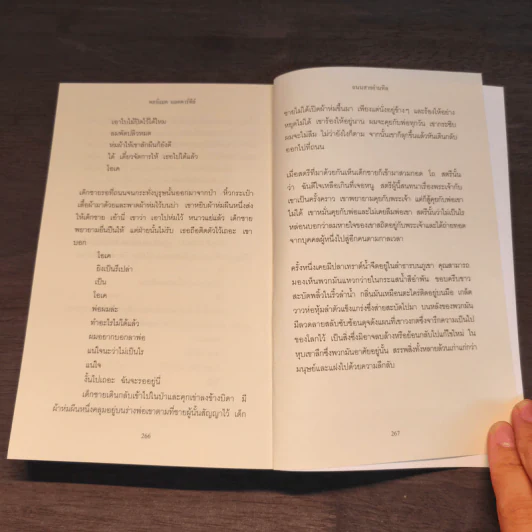 คอร์แมค แมคคาร์ธีย์
เอาไปไม่ก็ทิ้งไว้ได้ไหม
ลมพัดปลิวหมด
ห่มผ้าให้เขาสักผืนก็ยังดี
ได้ เดี๋ยวจัดการให้ เธอไปได้แล้ว
โอเค
เด็กชายรอที่ถนนจนกระทั่งบุรุษนั้นออกมาจากป่า หิ้วกระเป๋า
เสื้อผ้ามาด้วยและพาดผ้าห่มไว้บนบ่า เขาหยิบผ้าห่มผืนหนึ่งส่ง
ให้เด็กชาย เอ้านี่ เขาว่า เอาไปห่มไว้ หนาวแย่แล้ว เด็กชาย
พยายามยื่นปืนให้ แต่ฝ่ายนั้นไม่รับ เธอถือติดตัวไว้เถอะ เขา
บอก
โอเค
ยิงเป็นรึเปล่า
เป็น
โอเค
พ่อผมล่ะ
ทำอะไรไม่ได้แล้ว
ผมอยากบอกลาพ่อ
แน่ใจนะว่าไม่เป็นไร
แน่ใจ
งั้นไปเถอะ ฉันจะรออยู่นี่
เด็กชายเดินกลับเข้าไปในป่าและคุกเข่าลงข้างบิดา มี
ผ้าห่มผืนหนึ่งคลุมอยู่บนร่างพ่อเขาตามที่ชายผู้นั้นสัญญาไว้ เด็ก
266
ถนนสายอำมหิต
ชายไม่ได้เปิดผ้าห่มขึ้นมา เพียงแค่นั่งอยู่ข้างๆ และร้องไห้อย่าง
หยุดไม่ได้ เขาร้องไห้อยู่นาน ผมจะคุยกับพ่อทุกวัน เขากระซิบ
ผมจะไม่ลืม ไม่ว่ายังไงก็ตาม จากนั้นเขาก็ลุกขึ้นแล้วหันเดินกลับ
ออกไปที่ถนน
เมื่อสตรีที่มาด้วยกันเห็นเด็กชายก็เข้ามาสวมกอด โอ สตรีนั้น
ว่า ฉันดีใจเหลือเกินที่เจอหนู สตรีผู้นี้สนทนาเรื่องพระเจ้ากับ
เขาเป็นครั้งคราว เขาพยายามคุยกับพระเจ้า แต่ก็สู้คุยกับพ่อเขา
ไม่ได้ เขาหมั่นคุยกับพ่อและไม่เคยลืมพ่อเขา สตรีนั้นว่าไม่เป็นไร
หล่อนบอกว่าลมหายใจของเขาสถิตอยู่กับพระเจ้าและได้ถ่ายทอด
จากบุคคลผู้หนึ่งไปสู่อีกคนตามกาลเวลา
ครั้งหนึ่งเคยมีปลาเทราต์น้ำจืดอยู่ในลำธารบนภูเขา คุณสามารถ
มองเห็นพวกมันแหวกว่ายในกระแสน้ำสีอำพัน ขอบครีบขาว
สะบัดพลิ้วในริ้วลำน้ำ กลิ่นมันเหมือนตะไคร่ติดอยู่บนมือ เกล็ด
วาวห่อหุ้มลำตัวแข็งแกร่งซึ่งส่ายสะบัดไปมา บนหลังของพวกมัน
มีลวดลายสลับซับซ้อนดุจดังแผนที่เขาวงกตซึ่งจารึกความเป็นไป
ของโลกไว้ เป็นสิ่งซึ่งมิอาจลบล้างหรือย้อนกลับไปแก้ไขใหม่ ใน
หุบเขาลึกซึ่งพวกมันอาศัยอยู่นั้น สรรพสิ่งทั้งหลายล้วนเก่าแก่กว่า
มนุษย์และแฝงไปด้วยความลึกลับ
267